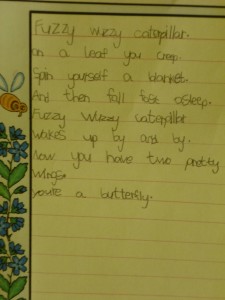 Fuzzy wuzzy caterpillar.
on a leaf you creep
Spin yourself a blanket.
And then fall fast asleep.
Fuzzy Wuzzy caterpillar
Wakes up by and by.
Now you have two pretty
wings.
you're a butterfly.